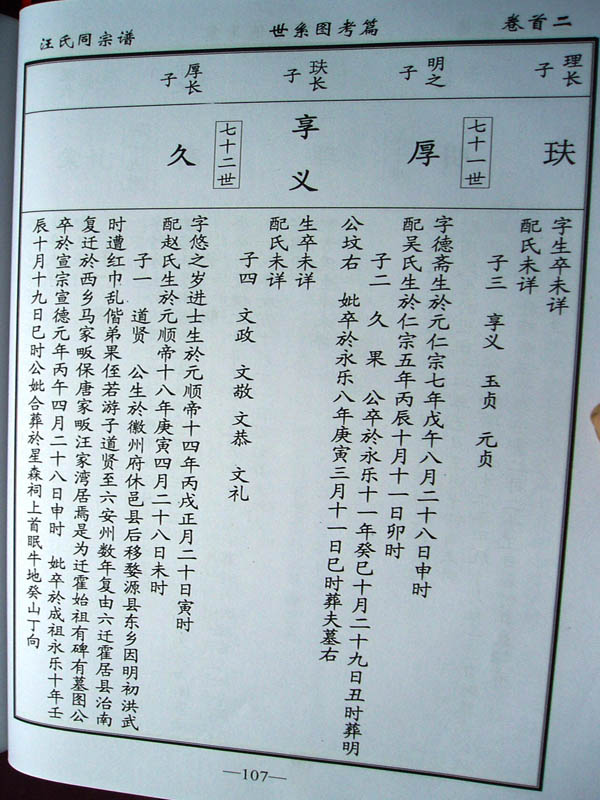 汪氏同宗谱
世系图考篇
卷首二
理长子
玞
字生卒未详
配氏未详
子三 享义 玉贞 元贞
七十一世
明之子
厚
字德斋生於元仁宗七年戊午八月二十八日申时
配吴氏生於仁宗五年丙辰十月十一日卯时
子二 久 果 公卒於永乐十一年癸巳十月二十九日丑时葬明
公坟右 妣卒於永乐八年庚寅三月十一日巳时葬夫墓右
玞长子
享义
生卒未详
配氏未详
子四 文政 文敬 文恭 文礼
七十二世
厚长子
久
字悠之岁进士生於元顺帝十四年丙戌正月二十日寅时
配赵氏生於元顺帝十八年庚寅四月二十八日未时
子一 道贤 公生於徽州府休邑县后移婺源县东乡因明初洪武
时遭红巾乱偕弟果侄若游子道贤至六安州数年复由六迁霍居县治南
复迁於西乡马家畈保唐家畈汪家湾居焉是为迁霍始祖有碑有墓图公
卒於宣宗宣德元年丙午四月二十八日申时 妣卒於成祖永乐十年壬
辰十月十九日巳时公妣合葬於星森祠上首眠牛地癸山丁向
—107—